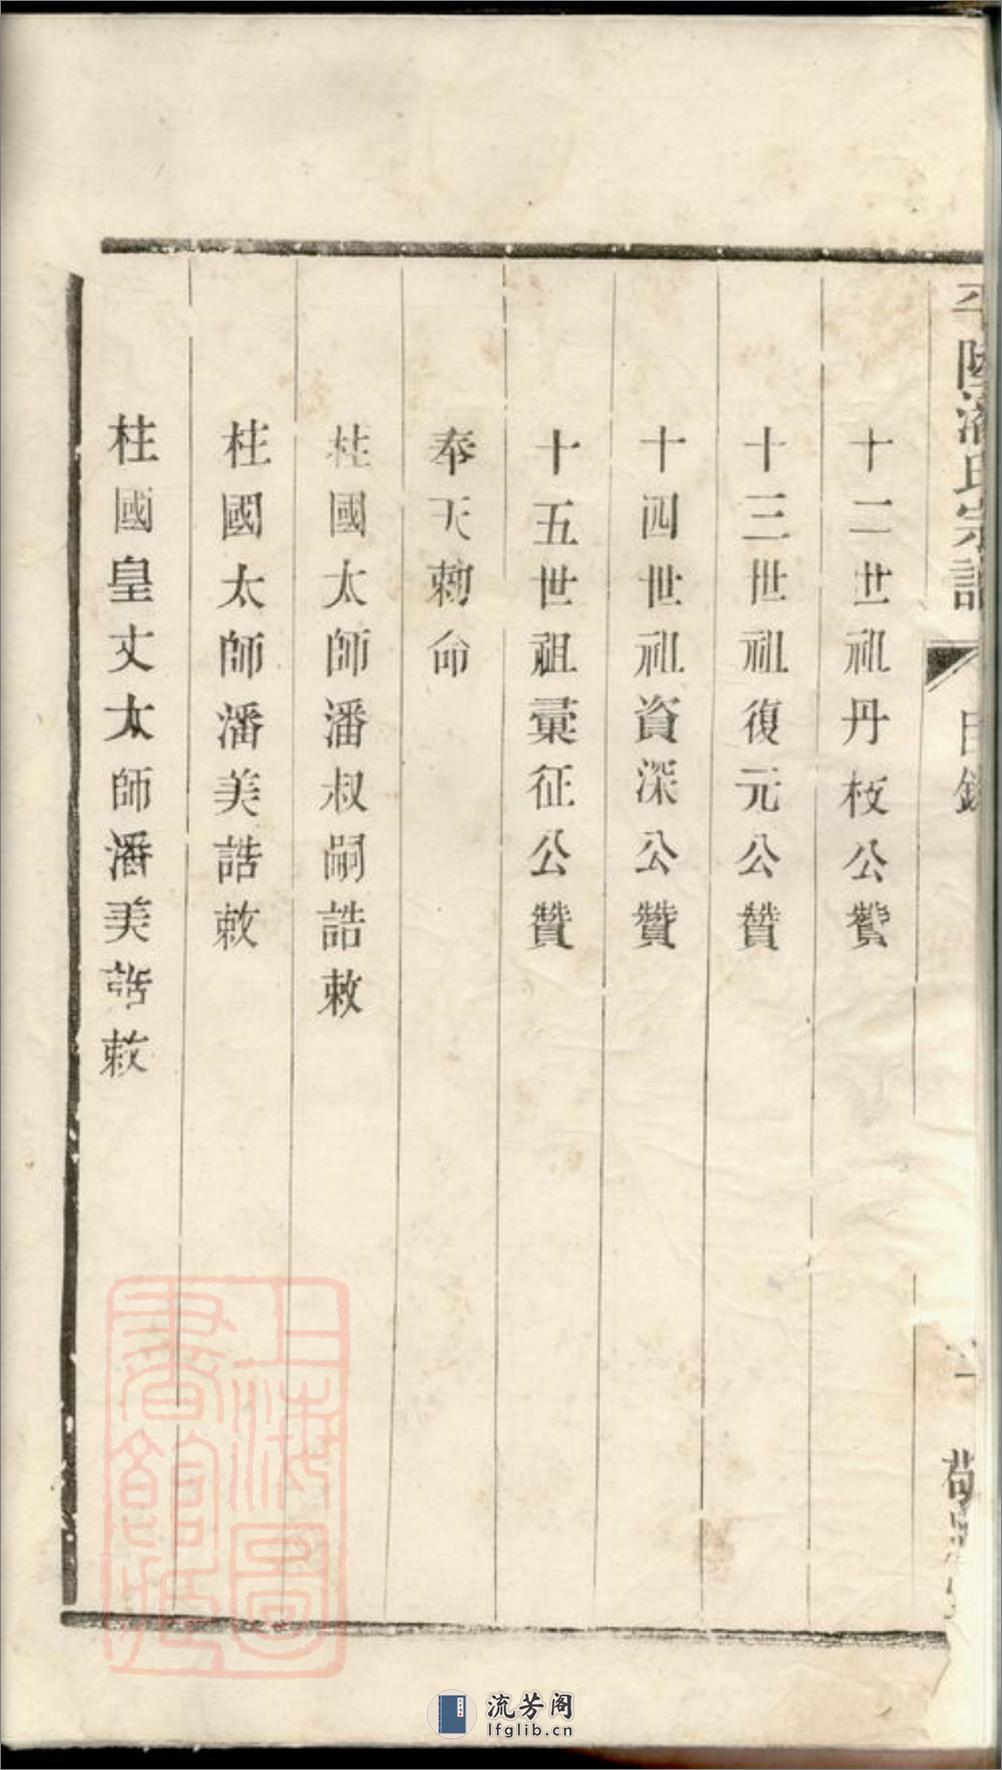 平陸潘氏宗譜 目錄 二
十二世祖丹枝公贊
十三世祖復元公贊
十四世祖資深公贊
十五世祖彙征公贊
奉天勅命
柱國太師潘叔嗣誥敕
柱國太師潘美誥敕
柱國皇丈太師潘美誥敕
上海圖書館藏
流芳阁
lfglib.cn